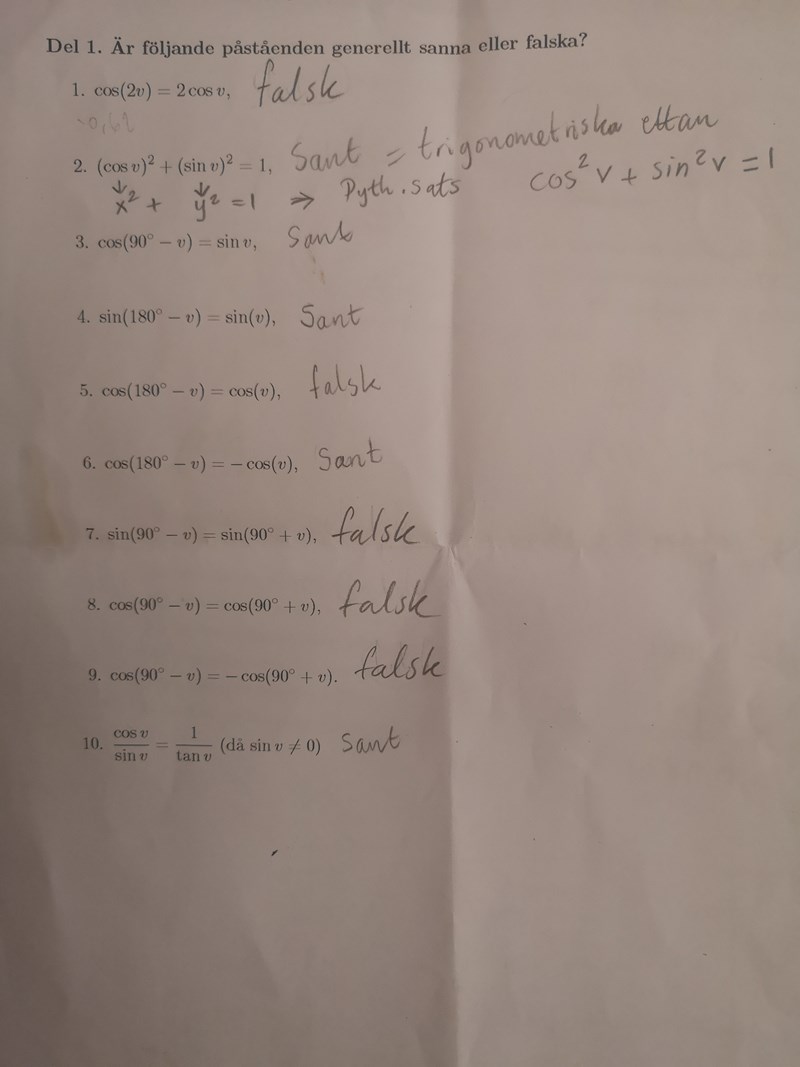 Del 1. Är följande påståenden generellt sanna eller falska?
1. cos(2v) = 2 cos v, falsk
2. (cos v)² + (sin v)² = 1, Sant = trigonometriska ettan
x² + y² = 1 ⇒ Pyth. sats cos² v + sin² v = 1
3. cos(90° − v) = sin v, Sant
4. sin(180° − v) = sin(v), Sant
5. cos(180° − v) = cos(v), falsk
6. cos(180° − v) = − cos(v), Sant
7. sin(90° − v) = sin(90° + v), falsk
8. cos(90° − v) = cos(90° + v), falsk
9. cos(90° − v) = − cos(90° + v). falsk
10. cos v / sin v = 1 / tan v (då sin v ≠ 0) Sant